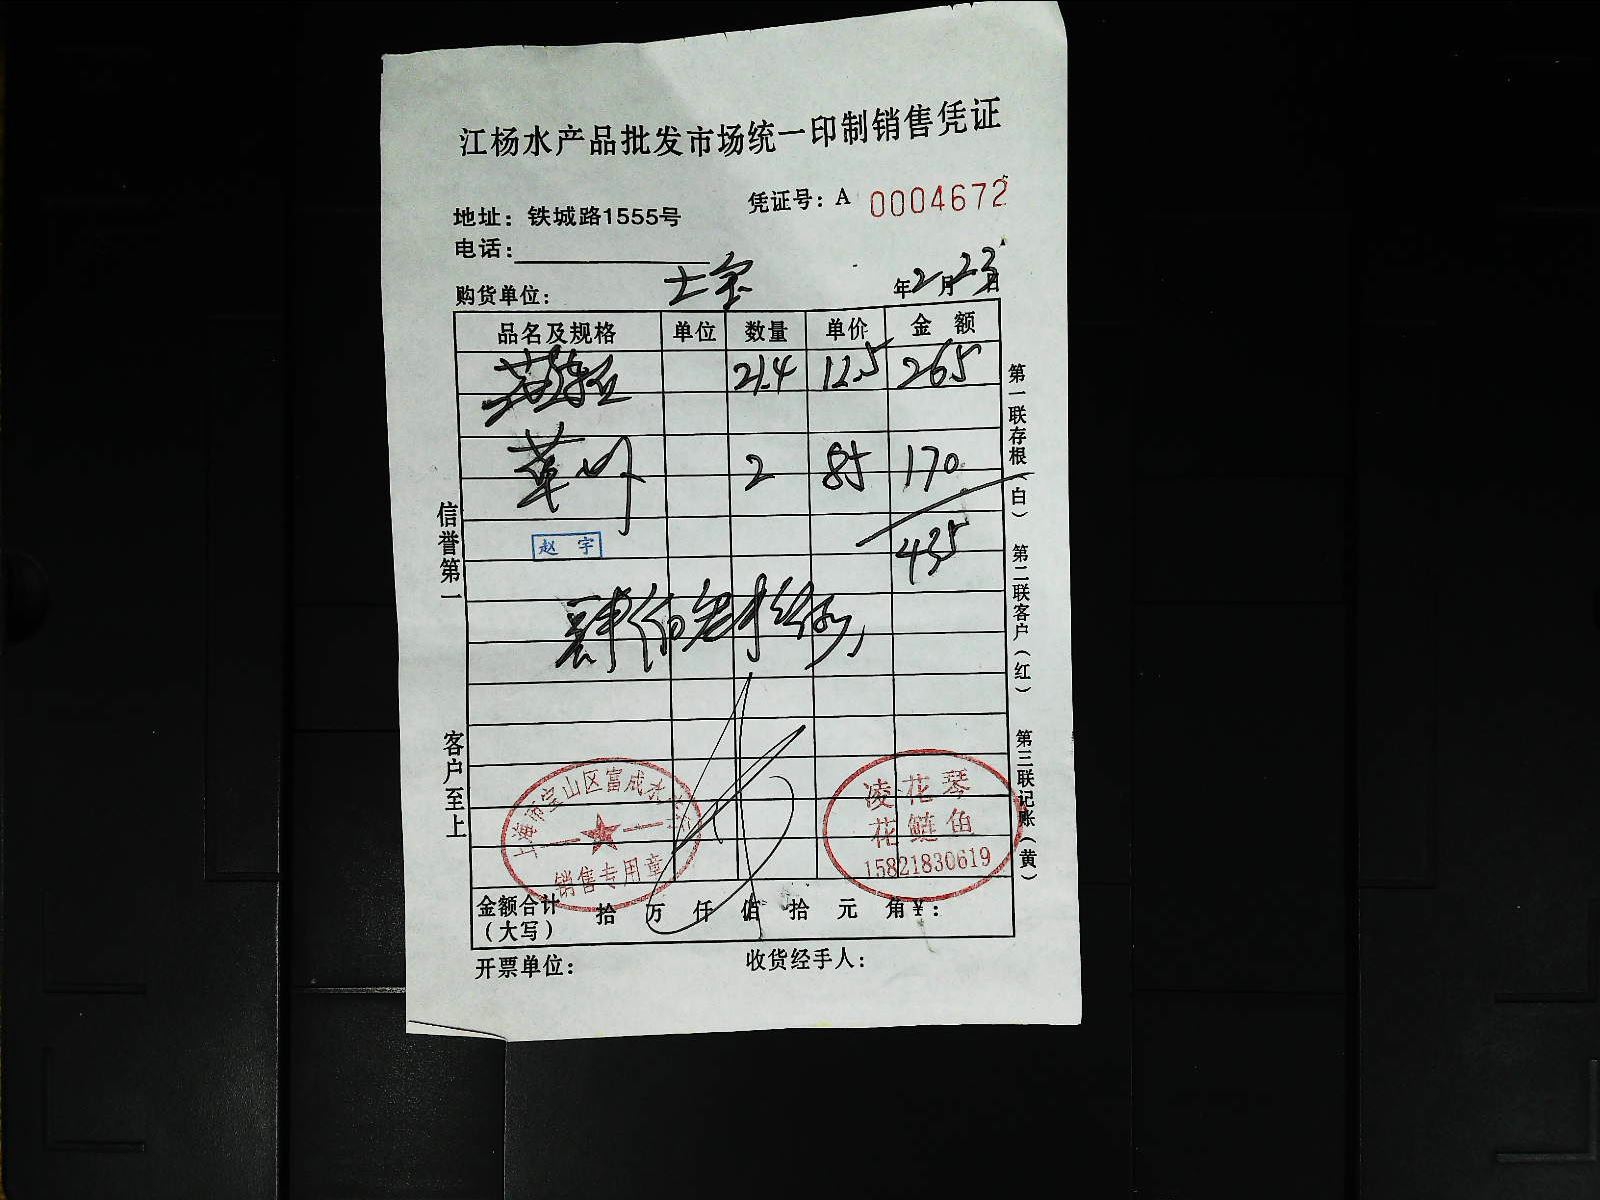 江杨水产品批发市场统一印制销售凭证
凭证号：A 0004672
地址：铁城路1555号
电话：
购货单位： 士宝
年2月23日
品名及规格 单位 数量 单价 金额
21.4 12.5 265
草 2 85 170
435
赵宇
肆佰叁拾伍
信誉第一 客户至上
第一联存根（白） 第二联客户（红） 第三联记账（黄）
上海市宝山区富成水
销售专用章
凌花琴
花鲢鱼
15821830619
金额合计（大写） 拾 万 仟 佰 拾 元 角 ¥：
开票单位： 收货经手人：